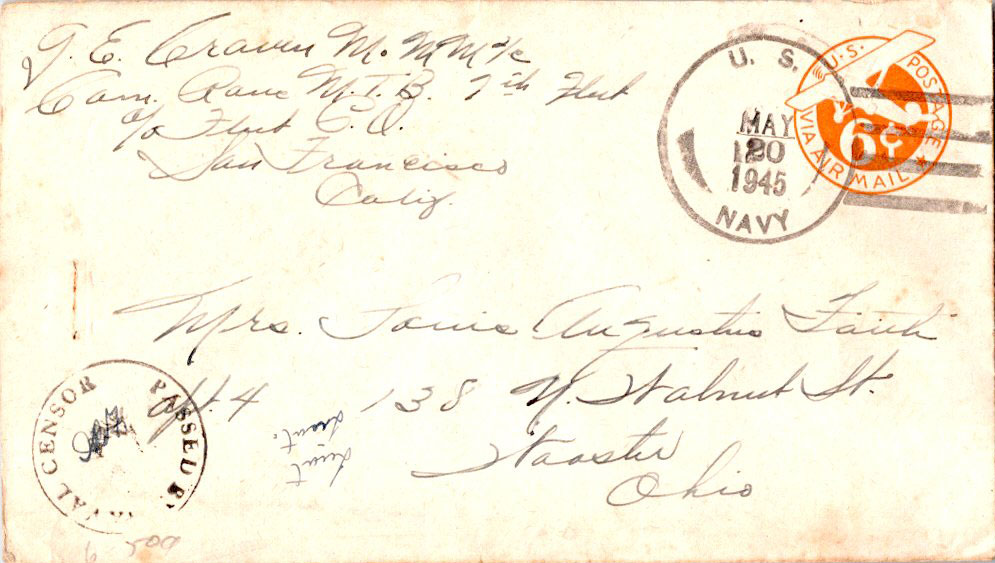 J. E. Craven M.M.M 1/c
Com. Ron M.T.B. 7th Fleet
c/o Fleet P.O.
San Francisco
Calif.
U. S.
MAY
20
1945
NAVY
U.S. POSTAGE
6¢
VIA AIR MAIL
Mrs. Louis Augustus
Apt. 4 138 N. Walnut St.
Wooster
Ohio
PASSED BY
NAVAL CENSOR